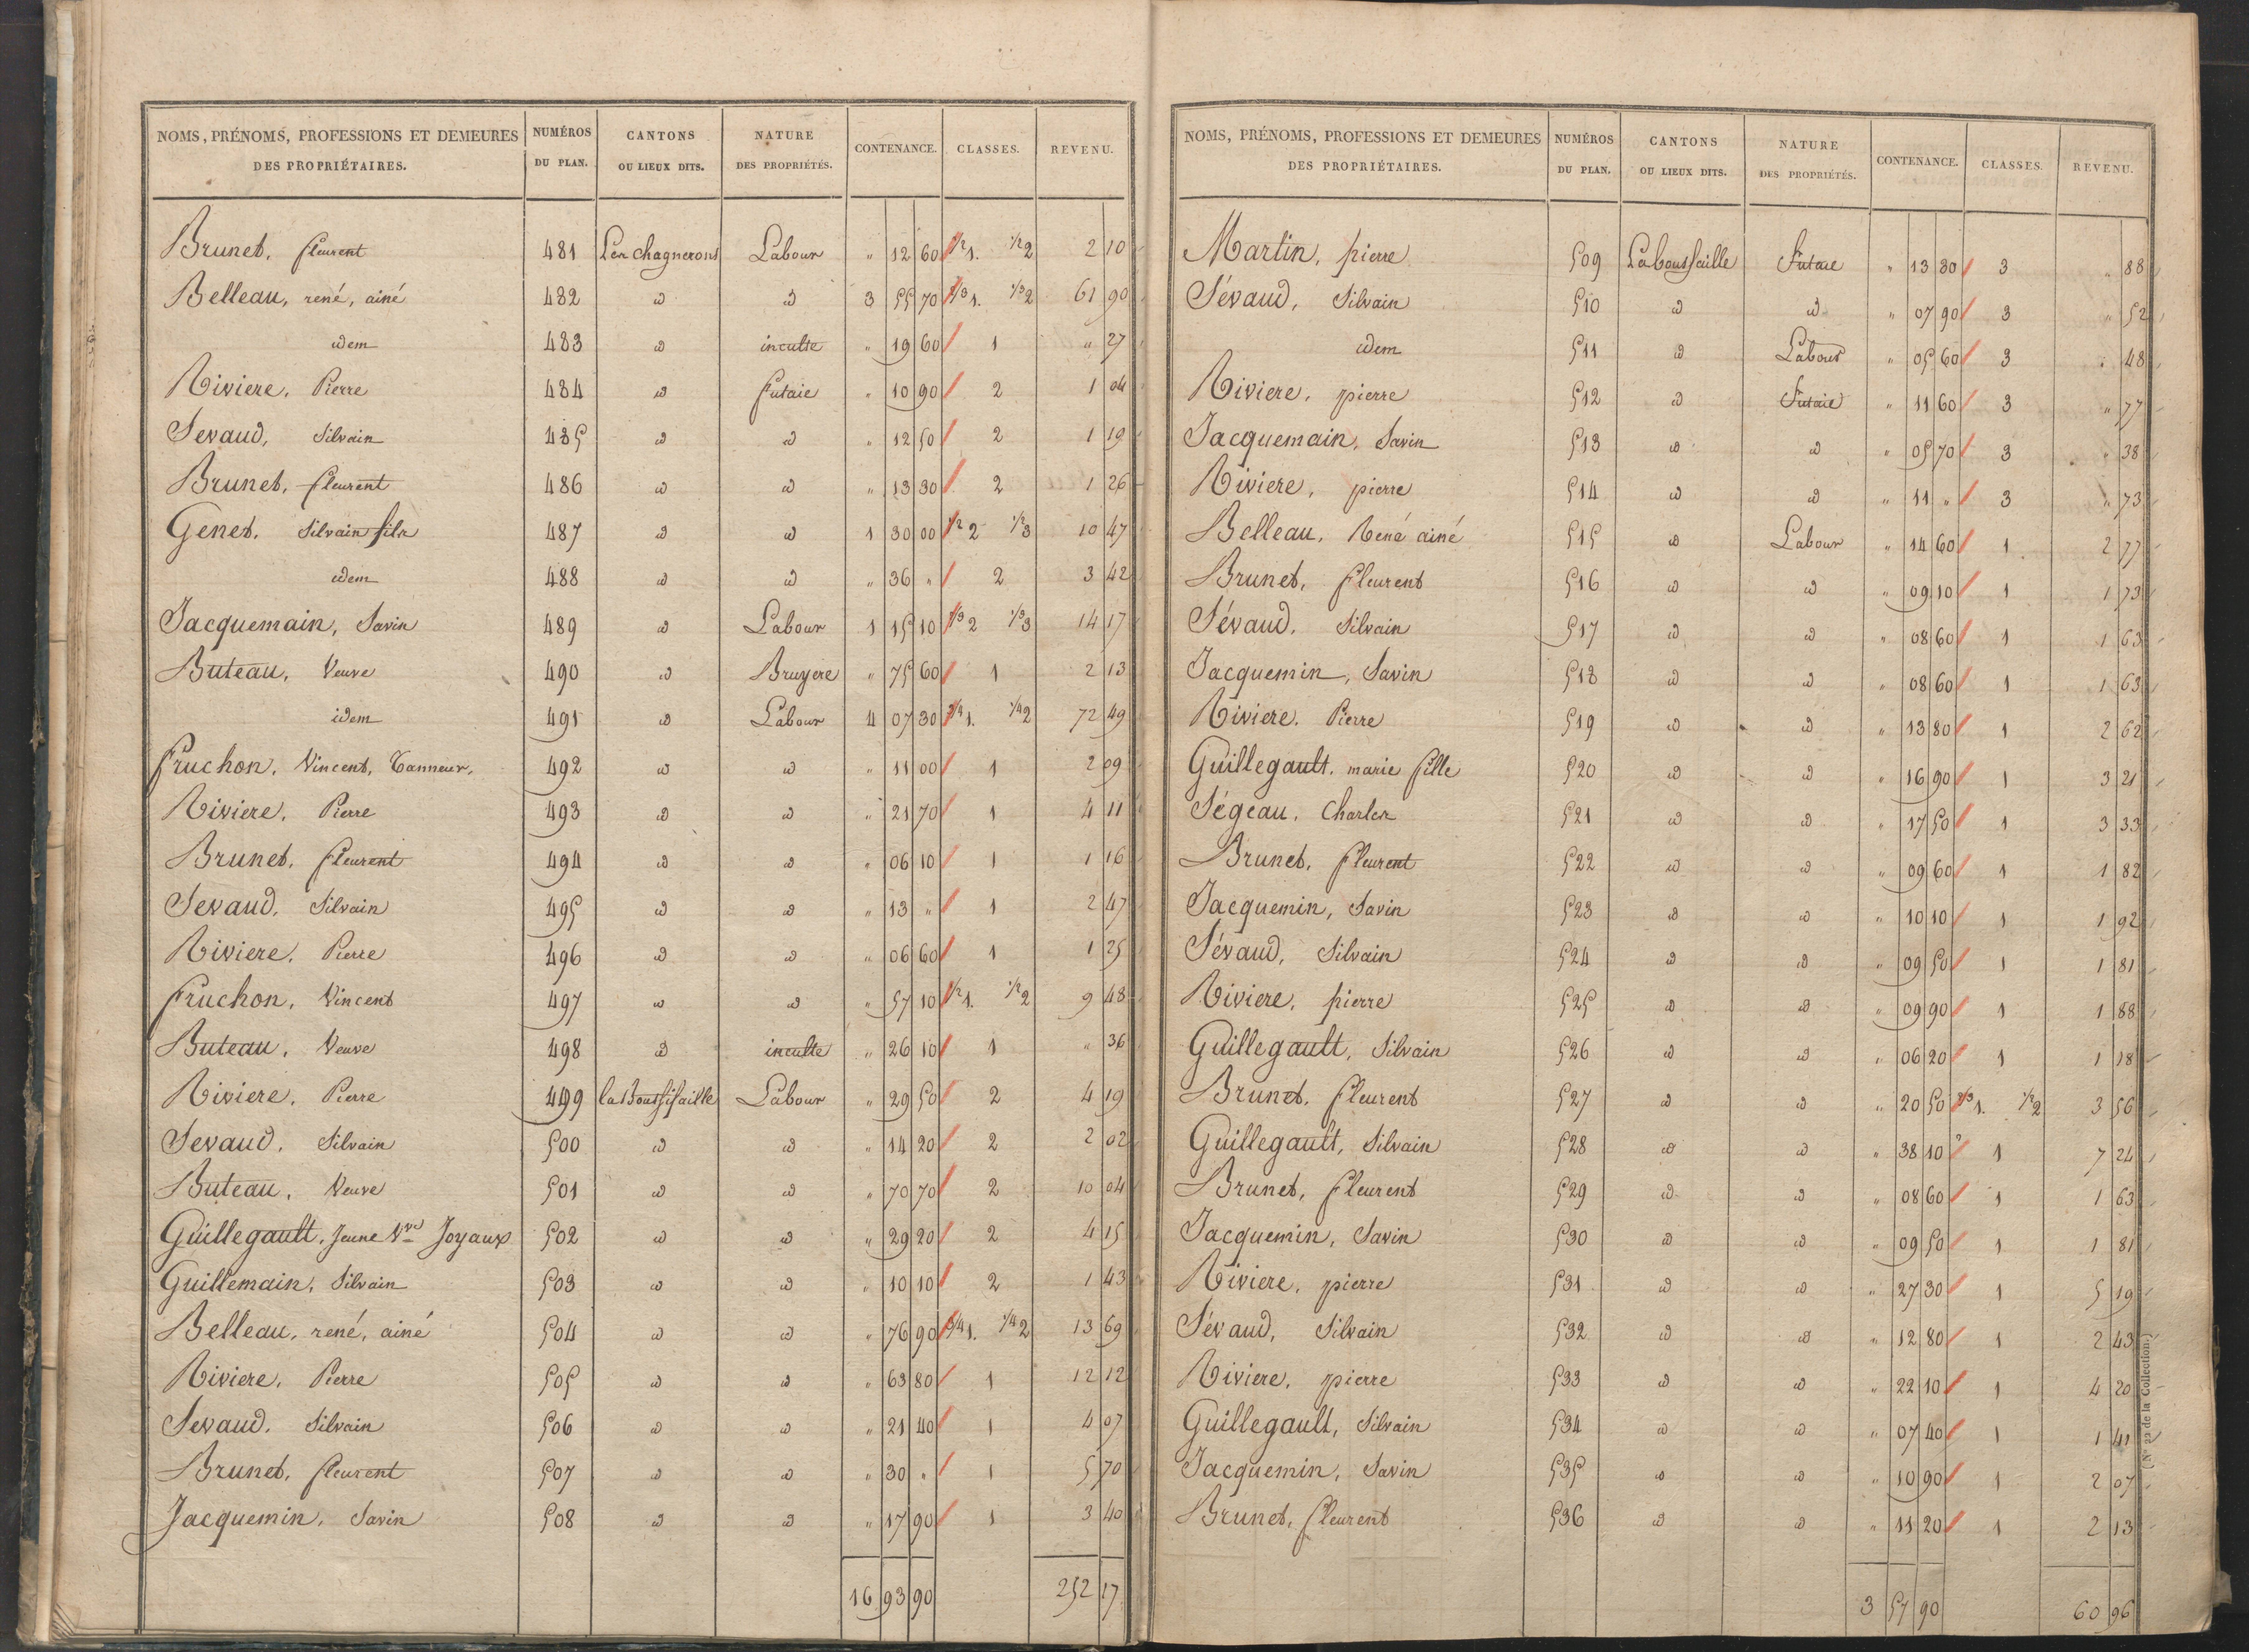 NOMS, PRÉNOMS, PROFESSIONS ET DEMEURES DES PROPRIÉTAIRES. NUMÉROS DU PLAN. CANTONS OU LIEUX DITS. NATURE DES PROPRIÉTÉS. CONTENANCE. CLASSES. REVENU.
Brunet, fleurent 481 Les chagnerons Labour " 12 60 1/2 1. 1/2 2 2 10
Belleau, rené, ainé 482 id id 3 55 70 2/3 1. 1/3 2 61 90
idem 483 id inculte " 19 60 1 " 27
Riviere, Pierre 484 id futaie " 10 90 2 1 04
Sevaud, Silvain 485 id id " 12 50 2 1 19
Brunet, fleurent 486 id id " 13 30 2 1 26
Genet, Silvain fils 487 id id 1 30 00 1/2 2 1/2 3 10 47
idem 488 id id " 36 " 2 3 42
Jacquemain, Savin 489 id Labour 1 15 10 2/3 2 1/3 3 14 17
Buteau, Veuve 490 id Bruyere " 75 60 1 2 13
idem 491 id Labour 4 07 30 3/4 1. 1/4 2 72 49
Fruchon, Vincent, Tanneur, 492 id id " 11 00 1 2 09
Riviere, Pierre 493 id id " 21 70 1 4 11
Brunet, fleurent 494 id id " 06 10 1 1 16
Sevaud, Silvain 495 id id " 13 " 1 2 47
Riviere, Pierre 496 id id " 06 60 1 1 25
Fruchon, Vincent 497 id id " 57 10 1/2 1. 1/2 2 9 48
Buteau, Veuve 498 id inculte " 26 10 1 " 36
Riviere, Pierre 499 la Boussisaille Labour " 29 50 2 4 19
Sevaud, Silvain 500 id id " 14 20 2 2 02
Buteau, Veuve 501 id id " 70 70 2 10 04
Guillegault, Jeune Vve Joyaux 502 id id " 29 20 2 4 15
Guillemain, Silvain 503 id id " 10 10 2 1 43
Belleau, rené, ainé 504 id id " 76 90 3/4 1. 1/4 2 13 69
Riviere, Pierre 505 id id " 63 80 1 12 12
Sevaud, Silvain 506 id id " 21 40 1 4 07
Brunet, fleurent 507 id id " 30 " 1 5 70
Jacquemin, Savin 508 id id " 17 90 1 3 40
16 93 90 252 17
NOMS, PRÉNOMS, PROFESSIONS ET DEMEURES DES PROPRIÉTAIRES. NUMÉROS DU PLAN. CANTONS OU LIEUX DITS. NATURE DES PROPRIÉTÉS. CONTENANCE. CLASSES. REVENU.
Martin, pierre 509 Laboussaille Futaie " 13 30 3 " 88
Sévaud, Silvain 510 id id " 07 90 3 " 52
idem 511 id Labour " 05 60 3 " 48
Riviere, pierre 512 id Futaie " 11 60 3 " 77
Jacquemain, Savin 513 id id " 05 70 3 " 38
Riviere, pierre 514 id id " 11 " 3 " 73
Belleau, René ainé 515 id Labour " 14 60 1 2 77
Brunet, fleurent 516 id id " 09 10 1 1 73
Sévaud, Silvain 517 id id " 08 60 1 1 63
Jacquemin, Savin 518 id id " 08 60 1 1 63
Riviere, Pierre 519 id id " 13 80 1 2 62
Guillegault, marie fille 520 id id " 16 90 1 3 21
Ségeau, Charles 521 id id " 17 50 1 3 33
Brunet, fleurent 522 id id " 09 60 1 1 82
Jacquemin, Savin 523 id id " 10 10 1 1 92
Sévaud, Silvain 524 id id " 09 50 1 1 81
Riviere, pierre 525 id id " 09 90 1 1 88
Guillegault, Silvain 526 id id " 06 20 1 1 18
Brunet, fleurent 527 id id " 20 50 1. 1/2 2 3 56
Guillegault, Silvain 528 id id " 38 10 1 7 24
Brunet, fleurent 529 id id " 08 60 1 1 63
Jacquemin, Savin 530 id id " 09 50 1 1 81
Riviere, pierre 531 id id " 27 30 1 5 19
Sévaud, Silvain 532 id id " 12 80 1 2 43
Riviere, pierre 533 id id " 22 10 1 4 20
Guillegault, Silvain 534 id id " 07 40 1 1 41
Jacquemin, Savin 535 id id " 10 90 1 2 07
Brunet, fleurent 536 id id " 11 20 1 2 13
3 57 90 60 96
(N° 22 de la Collection.)